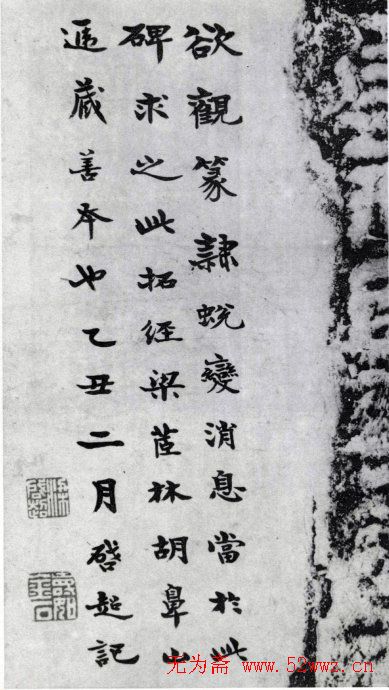 欲觀篆隸蛻變消息當於此
碑求之此拓經梁茝林胡鼻山
遞藏善本也乙丑二月啓超記
无为斋 www.52wwz.cn